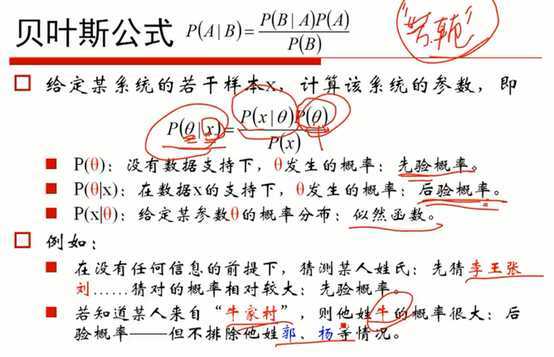 贝叶斯公式 P(A|B)=P(B|A)P(A)/P(B)
给定某系统的若干样本x，计算该系统的参数，即
P(θ|x)=P(x|θ)P(θ)/P(x)
P(θ)：没有数据支持下，θ发生的概率：先验概率。
P(θ|x)：在数据x的支持下，θ发生的概率：后验概率。
P(x|θ)：给定某参数θ的概率分布：似然函数。
例如：
在没有任何信息的前提下，猜测某人姓氏：先猜李王张
刘……猜对的概率相对较大：先验概率。
若知道某人来自“牛家村”，则他姓牛的概率很大：后
验概率——但不排除他姓郭、杨等情况。